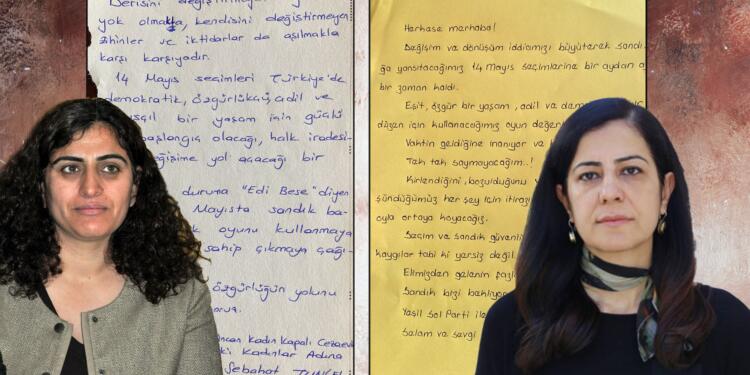 Derisini değiştirmeyen
yok olmakta, kendisini değiştirmeyen
zihinler ve iktidarlar da aşılmakla
karşı karşıyadır.
14 Mayıs seçimleri Türkiye'de
demokratik, özgürlükçü, adil ve
bir yaşam için güçlü
başlangıç olacağı, halk iradesi-
değişime yol açacağı bir
duruma "Edi Bese" diyen
Mayısta sandık ba-
oyunu kullanmaya
sahip çıkmaya çağı-
özgürlüğün yolunu
Kadın Kapalı Cezaev
Kadınlar Adına
Sebahat TUNCEL
Herkese merhaba!
Değişim ve dönüşüm iddiamızı büyüterek sandı-
ğa yansıtacağımız 14 Mayıs seçimlerine bir aydan a
bir zaman kaldı.
Eşit, özgür bir yaşam, adil ve dem
düzen için kullanacağımız oyun değer
Vaktin geldiğine inanıyor ve
Tek tek saymayacağım..!
Kirlendiğini, bozulduğunu v
şündüğümüz her şey için itiraz
oyla ortaya koyacağız.
Seçim ve sandık güvenli
kaygılar tabi ki yersiz değil.
Elimizden gelenin fazl
Sandık bizi bekliyor
Yeşil Sol Parti ile
Selam ve sevgi